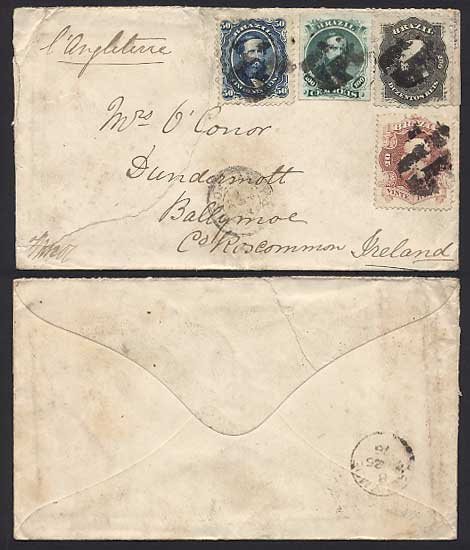 l'Angleterre
BRAZIL
50 50
CINCOENTA REIS
BRAZIL
100 100
CEM REIS
BRAZIL
200
DUZENTOS REIS
BRAZIL
20
Mrs O'Conor
Dundermott
Ballymoe
Co Roscommon Ireland
25